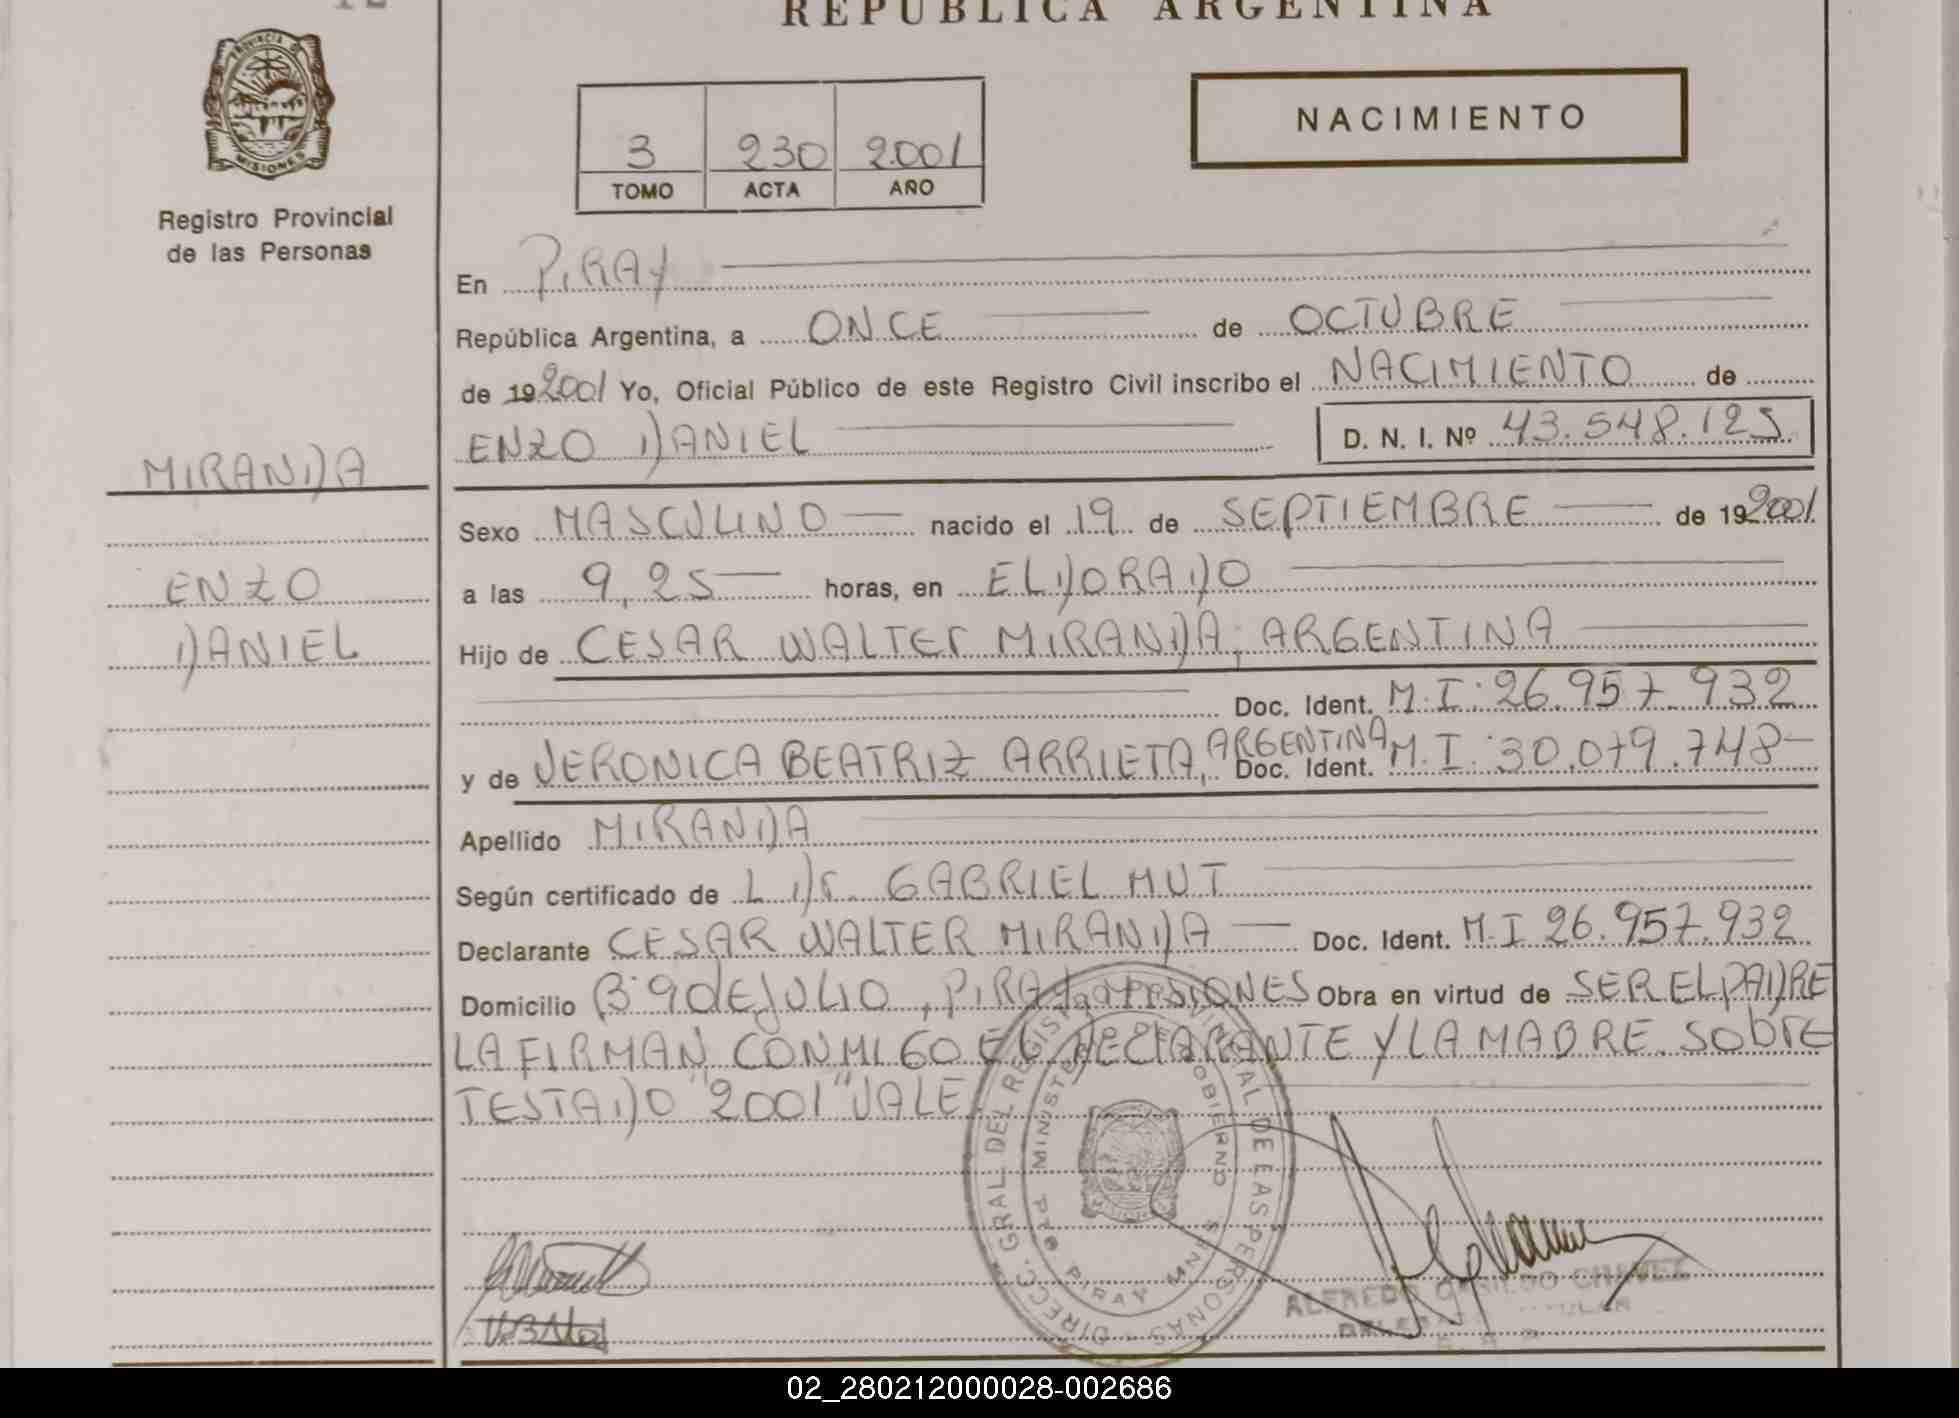 REPUBLICA ARGENTINA
PROVINCIA DE
MISIONES
Registro Provincial
de las Personas
NACIMIENTO
3 230 2001
TOMO ACTA AÑO
En PIRAY
República Argentina, a ONCE de OCTUBRE
de 19 2001 Yo, Oficial Público de este Registro Civil inscribo el NACIMIENTO de
ENZO DANIEL D. N. I. Nº 43.548.125
MIRANDA
ENZO
DANIEL
Sexo MASCULINO nacido el 19 de SEPTIEMBRE de 19 2001
a las 9,25 horas, en ELDORADO
Hijo de CESAR WALTER MIRANDA, ARGENTINA
Doc. Ident. M.I: 26.957.932
y de VERONICA BEATRIZ ARRIETA, ARGENTINA Doc. Ident. M.I: 30.079.748
Apellido MIRANDA
Según certificado de L Dr. GABRIEL MUT
Declarante CESAR WALTER MIRANDA Doc. Ident. M.I 26.957.932
Domicilio Bº 9 DE JULIO, PIRAY MISIONES Obra en virtud de SER EL PADRE
LA FIRMAN CONMIGO EL DECLARANTE Y LA MADRE. Sobre
TESTADO "2001" VALE.
DIRECC. GRAL. DEL REGISTRO PROVINCIAL DE LAS PERSONAS
MINISTERIO DE GOBIERNO
PIRAY MNES
ALFREDO CHAVEZ
02_280212000028-002686